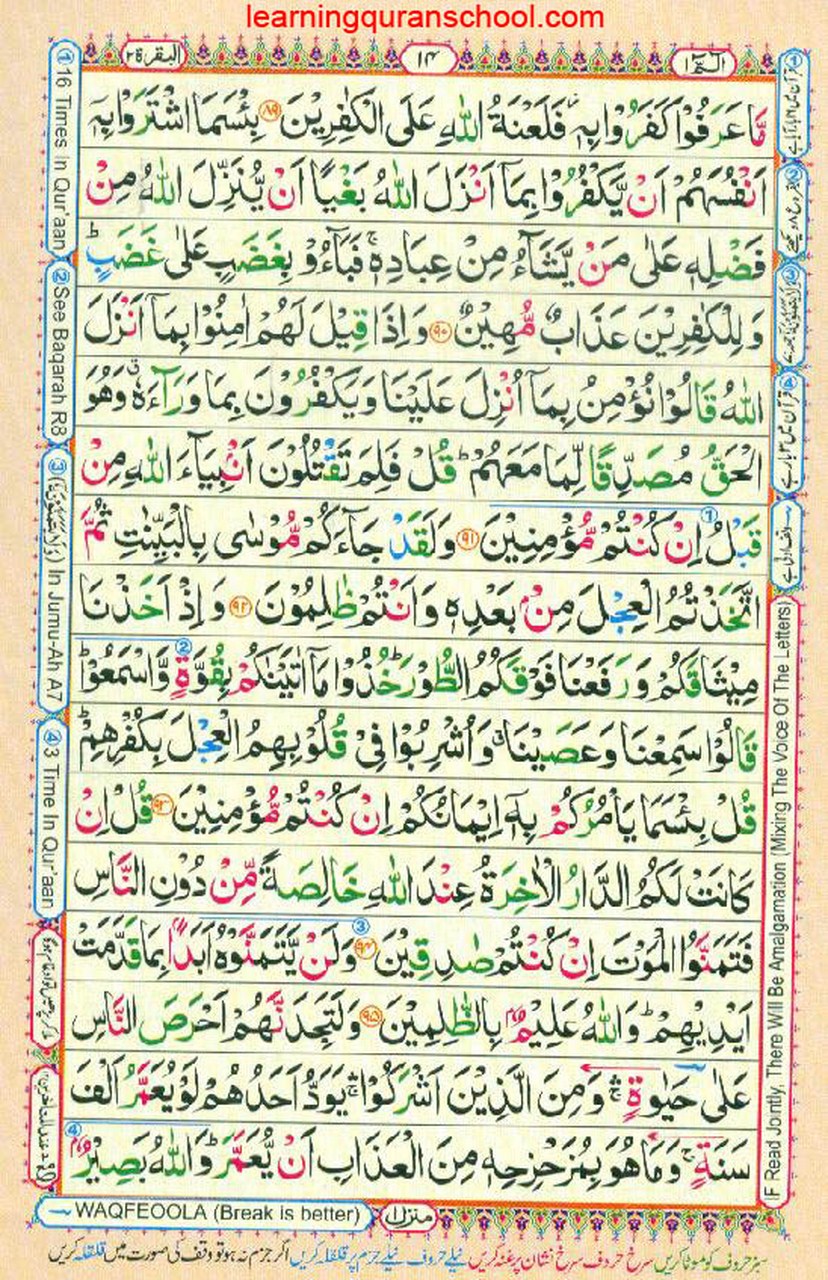 learningquranschool.com
البقرة ٢
١٤
الٓمّٓ ١
مَّا عَرَفُوْا كَفَرُوْا بِهٖ٘ فَلَعْنَةُ اللّٰهِ عَلَى الْكٰفِرِيْنَ ﴿٨٩﴾ بِئْسَمَا اشْتَرَوْا بِهٖۤ
اَنْفُسَهُمْ اَنْ يَّكْفُرُوْا بِمَاۤ اَنْزَلَ اللّٰهُ بَغْيًا اَنْ يُّنَزِّلَ اللّٰهُ مِنْ
فَضْلِهٖ عَلٰى مَنْ يَّشَآءُ مِنْ عِبَادِهٖ ۚ فَبَآءُوْ بِغَضَبٍ عَلٰى غَضَبٍ ؕ
وَ لِلْكٰفِرِيْنَ عَذَابٌ مُّهِيْنٌ ﴿٩٠﴾ وَ اِذَا قِيْلَ لَهُمْ اٰمِنُوْا بِمَاۤ اَنْزَلَ
اللّٰهُ قَالُوْا نُؤْمِنُ بِمَاۤ اُنْزِلَ عَلَيْنَا وَ يَكْفُرُوْنَ بِمَا وَرَآءَهٗ ۗ وَ هُوَ
الْحَقُّ مُصَدِّقًا لِّمَا مَعَهُمْ ؕ قُلْ فَلِمَ تَقْتُلُوْنَ اَنْۢبِيَآءَ اللّٰهِ مِنْ
قَبْلُ اِنْ كُنْتُمْ مُّؤْمِنِيْنَ ﴿٩١﴾ وَ لَقَدْ جَآءَكُمْ مُّوْسٰى بِالْبَيِّنٰتِ ثُمَّ
اتَّخَذْتُمُ الْعِجْلَ مِنْۢ بَعْدِهٖ وَ اَنْتُمْ ظٰلِمُوْنَ ﴿٩٢﴾ وَ اِذْ اَخَذْنَا
مِيْثَاقَكُمْ وَ رَفَعْنَا فَوْقَكُمُ الطُّوْرَ ؕ خُذُوْا مَاۤ اٰتَيْنٰكُمْ بِقُوَّةٍ وَّ اسْمَعُوْا ؕ
قَالُوْا سَمِعْنَا وَ عَصَيْنَا ۗ وَ اُشْرِبُوْا فِيْ قُلُوْبِهِمُ الْعِجْلَ بِكُفْرِهِمْ ؕ
قُلْ بِئْسَمَا يَاْمُرُكُمْ بِهٖۤ اِيْمَانُكُمْ اِنْ كُنْتُمْ مُّؤْمِنِيْنَ ﴿٩٣﴾ قُلْ اِنْ
كَانَتْ لَكُمُ الدَّارُ الْاٰخِرَةُ عِنْدَ اللّٰهِ خَالِصَةً مِّنْ دُوْنِ النَّاسِ
فَتَمَنَّوُا الْمَوْتَ اِنْ كُنْتُمْ صٰدِقِيْنَ ﴿٩٤﴾ وَ لَنْ يَّتَمَنَّوْهُ اَبَدًۢا بِمَا قَدَّمَتْ
اَيْدِيْهِمْ ؕ وَ اللّٰهُ عَلِيْمٌۢ بِالظّٰلِمِيْنَ ﴿٩٥﴾ وَ لَتَجِدَنَّهُمْ اَحْرَصَ النَّاسِ
عَلٰى حَيٰوةٍ ۛۚ وَ مِنَ الَّذِيْنَ اَشْرَكُوْا ۛۚ يَوَدُّ اَحَدُهُمْ لَوْ يُعَمَّرُ اَلْفَ
سَنَةٍ ۚ وَ مَا هُوَ بِمُزَحْزِحِهٖ مِنَ الْعَذَابِ اَنْ يُّعَمَّرَ ؕ وَ اللّٰهُ بَصِيْرٌۢ
① 16 Times in Qur'aan
② See Baqarah R8
③ In Jumu-Ah A7
④ 3 Time In Qur'aan
IF Read Jointly, There Will Be Amalgamation (Mixing The Voice Of The Letters)
WAQFEOOLA (Break is better)
منزل
سبز حروف کو موٹا کریں سرخ حروف سرخ نشان پر غنہ کریں نیلے حروف نیلے جزم پر قلقلہ کریں اگر جزم نہ ہو تو وقف کی صورت میں قلقلہ کریں